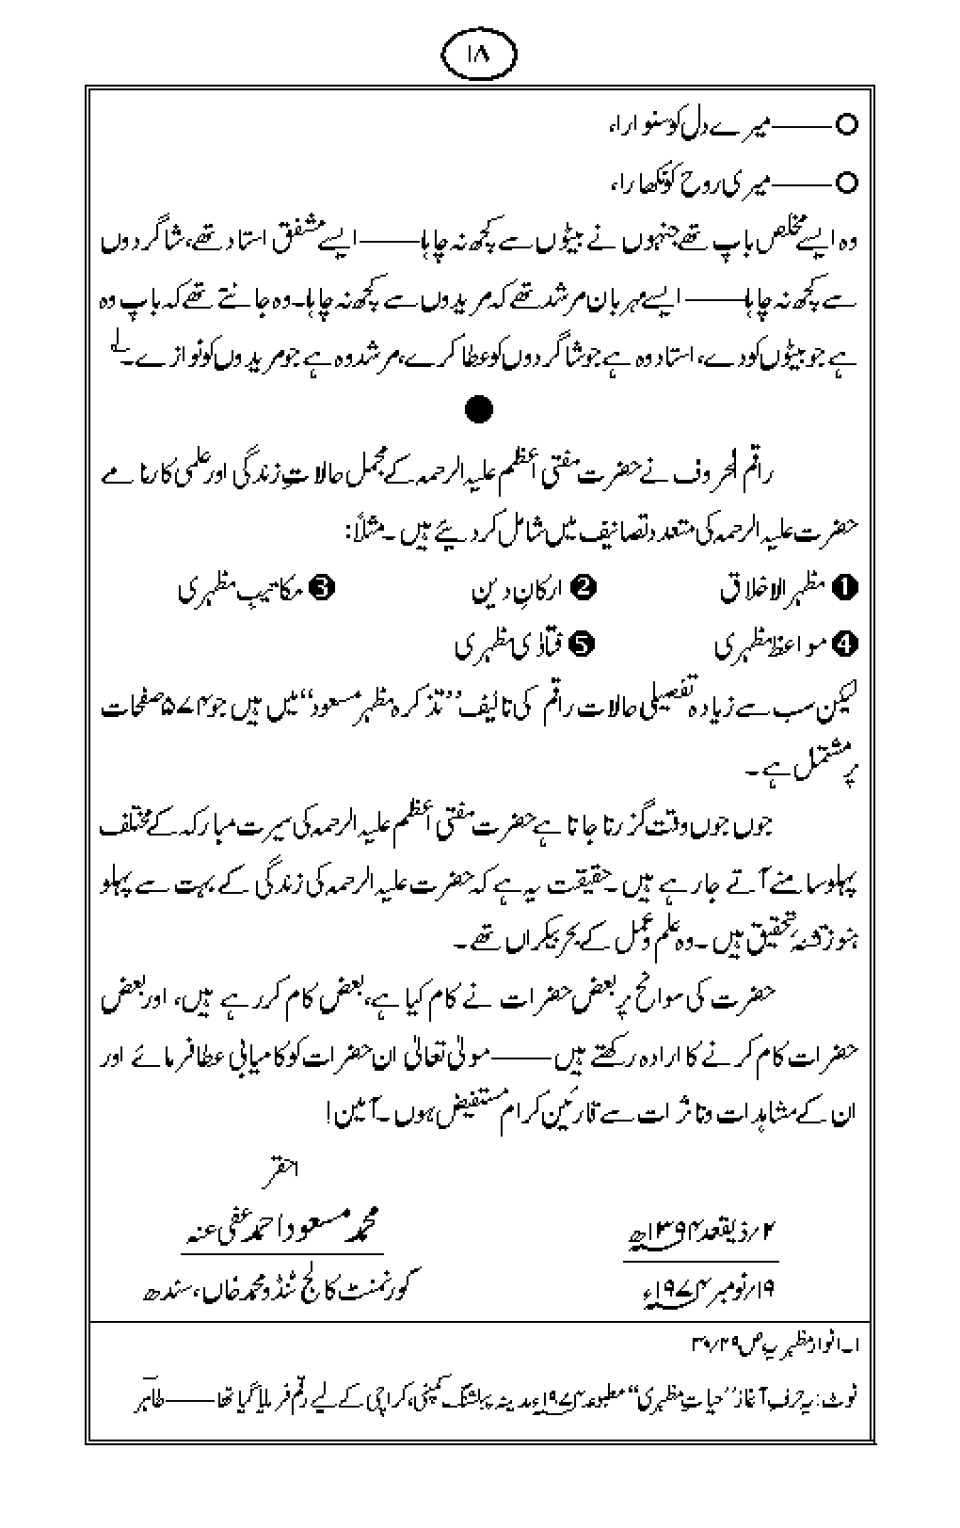 ۱۸
○ ——— میرے دل کو سنوارا،
○ ——— میری روح کو نکھارا،
وہ ایسے مخلص باپ تھے، جنہوں نے بیٹوں سے کچھ نہ چاہا——— ایسے مشفق استاد تھے، شاگردوں
سے کچھ نہ چاہا——— ایسے مہربان مرشد تھے کہ مریدوں سے کچھ نہ چاہا۔ وہ جانتے تھے کہ باپ وہ
ہے جو بیٹوں کو دے، استاد وہ ہے جو شاگردوں کو عطا کرے، مرشد وہ ہے جو مریدوں کو نوازے۔۱؎
●
راقم الحروف نے حضرت مفتی اعظم علیہ الرحمہ کے مجمل حالاتِ زندگی اور علمی کارنامے
حضرت علیہ الرحمہ کی متعدد تصانیف میں شامل کر دیئے ہیں۔ مثلاً:
❶ مظہر الاخلاق ❷ ارکانِ دین ❸ مکاتیبِ مظہری
❹ مواعظ مظہری ❺ فتاوٰی مظہری
لیکن سب سے زیادہ تفصیلی حالات راقم کی تالیف ’’تذکرہ مظہر مسعود‘‘ میں ہیں جو ۵۷۴ صفحات
پر مشتمل ہے۔
جوں جوں وقت گزرتا جاتا ہے حضرت مفتی اعظم علیہ الرحمہ کی سیرت مبارکہ کے مختلف
پہلو سامنے آتے جارہے ہیں۔ حقیقت یہ ہے کہ حضرت علیہ الرحمہ کی زندگی کے بہت سے پہلو
ہنوز تشنۂ تحقیق ہیں۔ وہ علم و عمل کے بحر بیکراں تھے۔
حضرت کی سوانح پر بعض حضرات نے کام کیا ہے، بعض کام کررہے ہیں، اور بعض
حضرات کام کرنے کا ارادہ رکھتے ہیں——— مولیٰ تعالیٰ ان حضرات کو کامیابی عطا فرمائے اور
ان کے مشاہدات و تاثرات سے قارئین کرام مستفیض ہوں۔ آمین!
احقر
۲/ذیقعد ۱۳۹۴ھ محمد مسعود احمد عفی عنہ
۱۹/نومبر ۱۹۷۴ء گورنمنٹ کالج ٹنڈو محمد خاں، سندھ
۱۔ انوار مظہریہ ص ۲۹/۳۰
نوٹ: یہ حرف آغاز ’’حیات مظہری‘‘ مطبوعہ ۱۹۷۴ء مدینہ پبلشنگ کمپنی، کراچی کے لیے رقم فرمایا گیا تھا——— طاہر